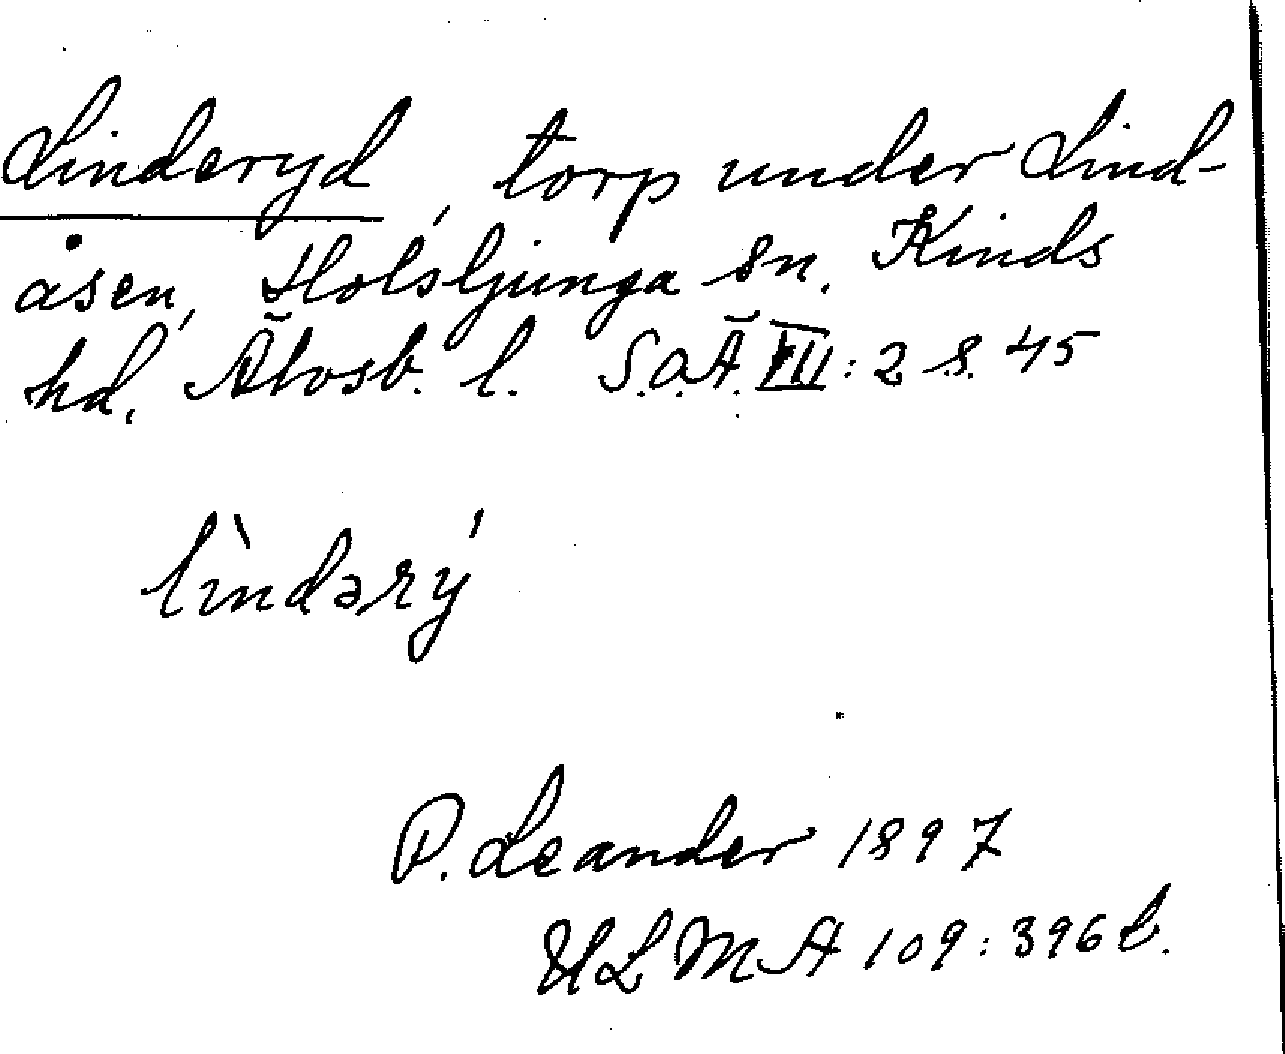 Linderyd, torp under Lind-
åsen, Holsljunga sn. Kinds
hd, Älvsb. l. S.O.Ä. VII:2 s. 45
lìndərý
P. Leander 1897
ULMA 109:396 b.